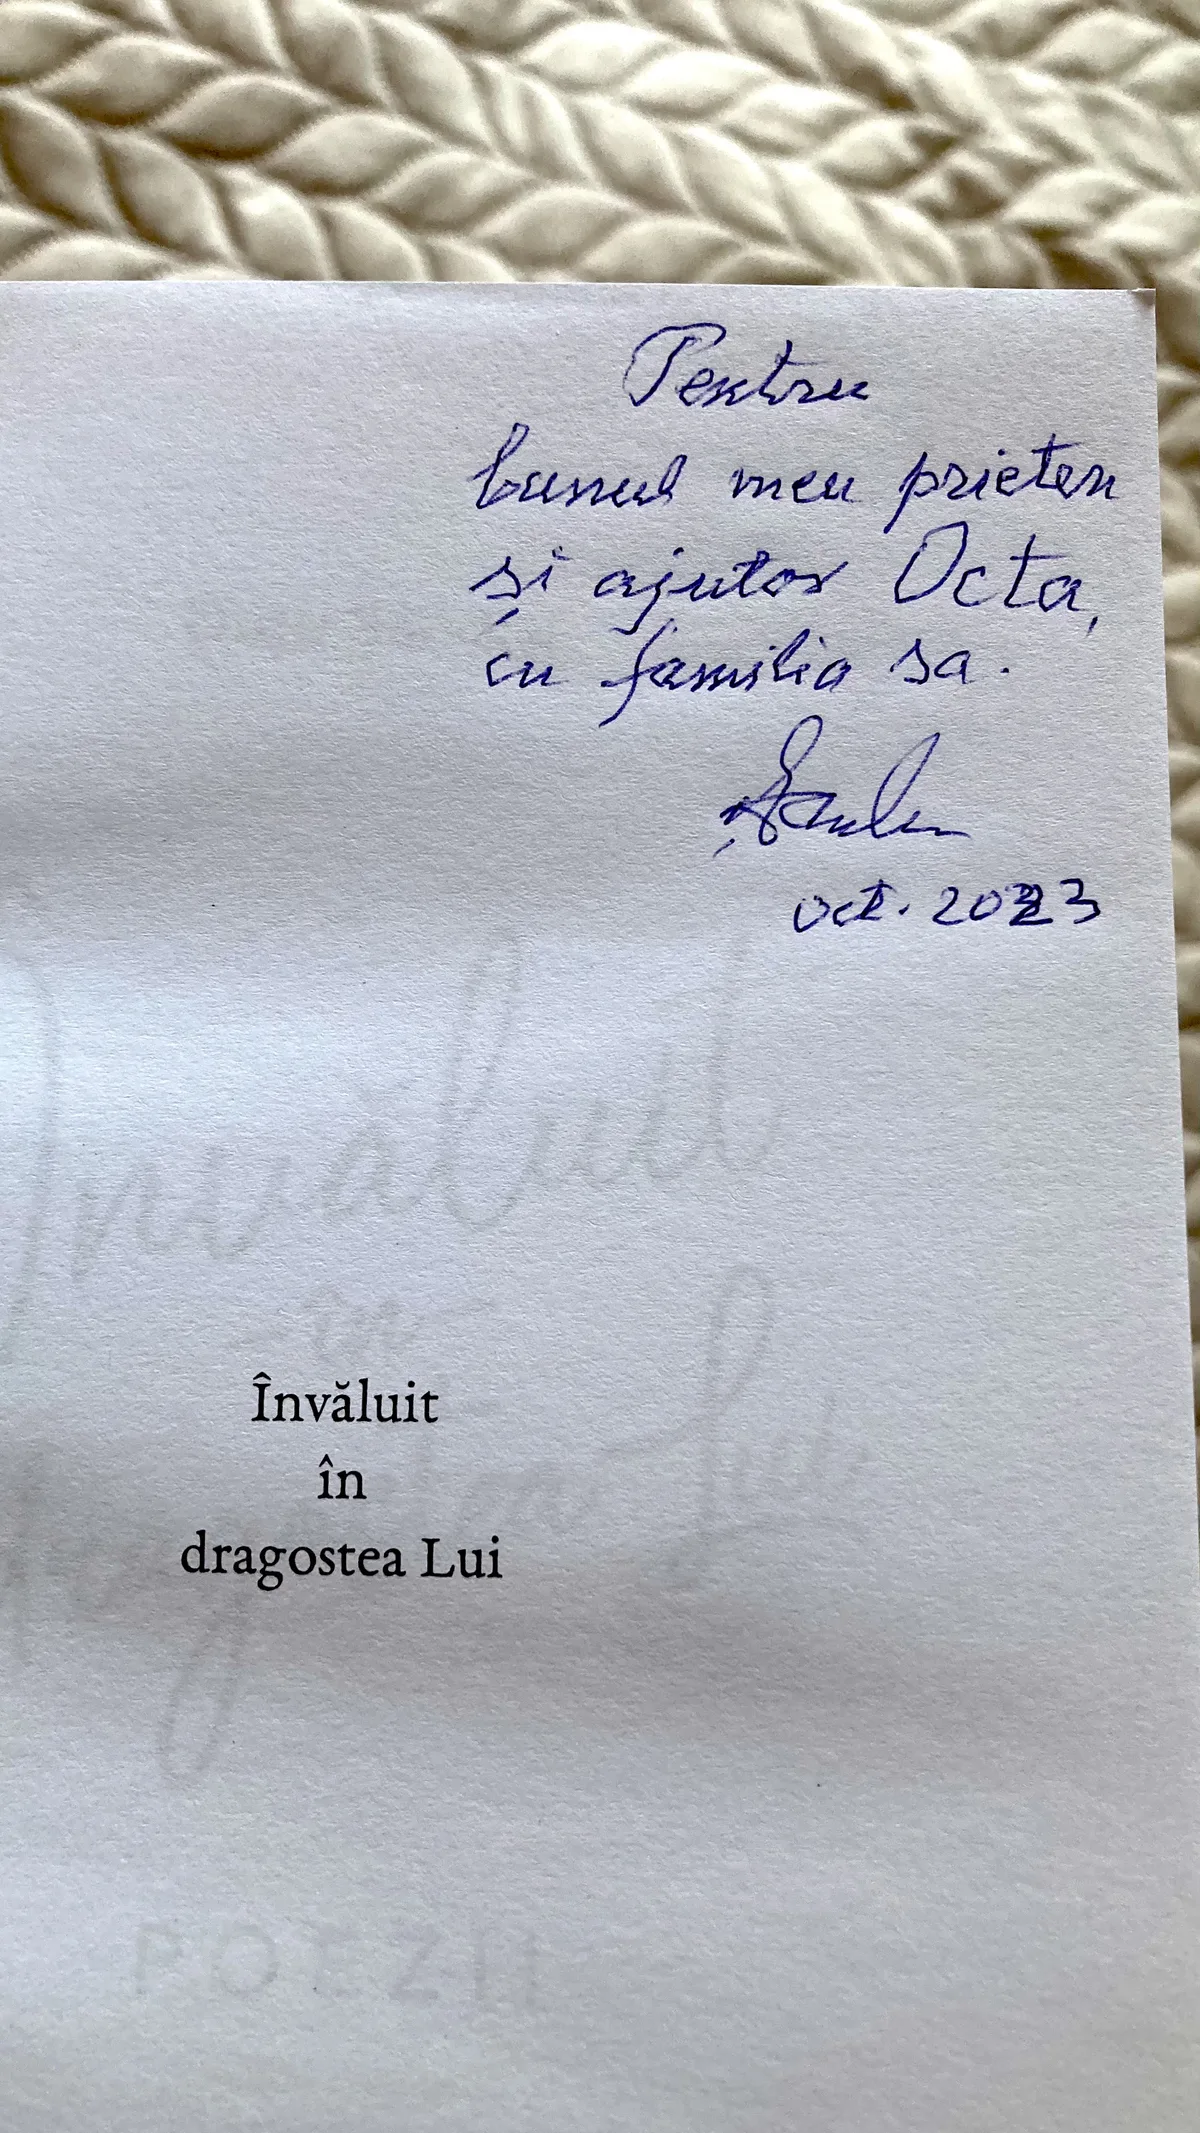 Pentru
bunul meu prieten
și ajutor Octa,
cu familia sa.
oct. 2023
Învăluit
în
Învăluit
în
dragostea Lui
POEZII